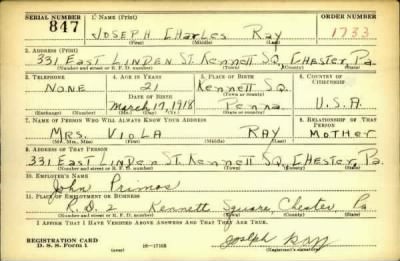 SERIAL NUMBER 1. NAME (Print) ORDER NUMBER
847 JOSEPH CHARLES RAY 1733
(First) (Middle) (Last)
2. ADDRESS (Print)
331 EAST LINDEN ST. KENNETT SQ, CHESTER, Pa.
(Number and street or R. F. D. number) (Town) (County) (State)
3. TELEPHONE 4. AGE IN YEARS 5. PLACE OF BIRTH 6. COUNTRY OF CITIZENSHIP
NONE 21 Kennett SQ.
DATE OF BIRTH (Town or county)
March 17, 1918 Penna. U.S.A.
(Exchange) (Number) (Mo.) (Day) (Yr.) (State or country)
7. NAME OF PERSON WHO WILL ALWAYS KNOW YOUR ADDRESS 8. RELATIONSHIP OF THAT PERSON
MRS. VIOLA RAY MOTHER
(Mr., Mrs., Miss) (First) (Middle) (Last)
9. ADDRESS OF THAT PERSON
331 EAST LINDEN ST. KENNETT SQ, CHESTER, Pa.
(Number and street or R. F. D. number) (Town) (County) (State)
10. EMPLOYER'S NAME
John Primos
11. PLACE OF EMPLOYMENT OR BUSINESS
R.D. 2 Kennett Square, Chester Pa
(Number and street or R. F. D. number) (Town) (County) (State)
I AFFIRM THAT I HAVE VERIFIED ABOVE ANSWERS AND THAT THEY ARE TRUE.
REGISTRATION CARD
D. S. S. Form 1 16-17105 Joseph Ray
(Registrant's signature)